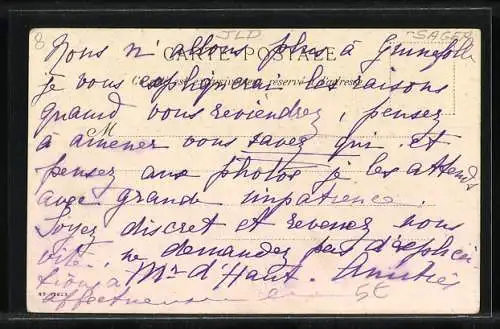 8 JLD SAGER
CARTE POSTALE
Nous n'allons plus à
je vous expliquerai les raisons
quand vous reviendrez, pensez
M
à amener vous savez qui et
pensez aux photos je les attends
avec grande impatience.
Soyez discret et revenez nous
vite, ne demandez pas d'explica
tions à Mr d'Haut. Amitiés
affectueuses
5€